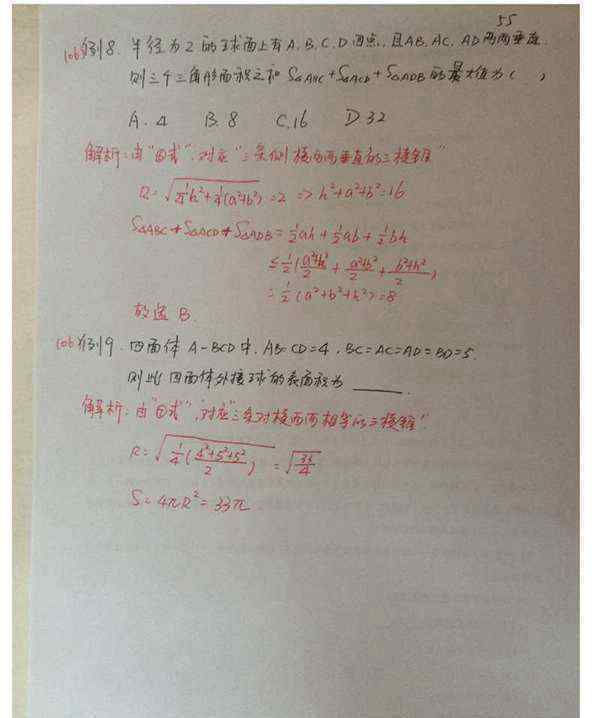 55
106 例8. 半径为2的球面上有A.B.C.D四点.且AB.AC.AD两两垂直.
则三个三角形面积之和 S△ABC+S△ACD+S△ADB的最大值为( )
A. 4 B. 8 C. 16 D. 32
解析:由“四式”,对应“三条侧棱两两垂直的三棱锥”
R=√(¼h²+¼(a²+b²))=2 => h²+a²+b²=16
S△ABC+S△ACD+S△ADB=½ah+½ab+½bh
≤½(a²+h²/2+a²+b²/2+b²+h²/2)
=½(a²+b²+h²)=8
故选B.
106 例9. 四面体A-BCD中. AB=CD=4. BC=AC=AD=BD=5.
则此四面体外接球的表面积为______.
解析:由“四式”,对应“三条对棱两两相等的三棱锥”.
R=√(¼(4²+5²+5²/2))=√(33/4)
S=4πR²=33π.